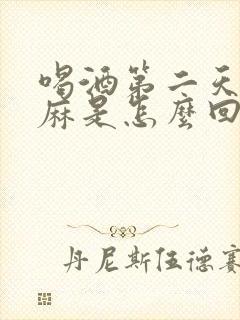 喝酒第二天
麻是怎麼回
丹尼斯伍德賽